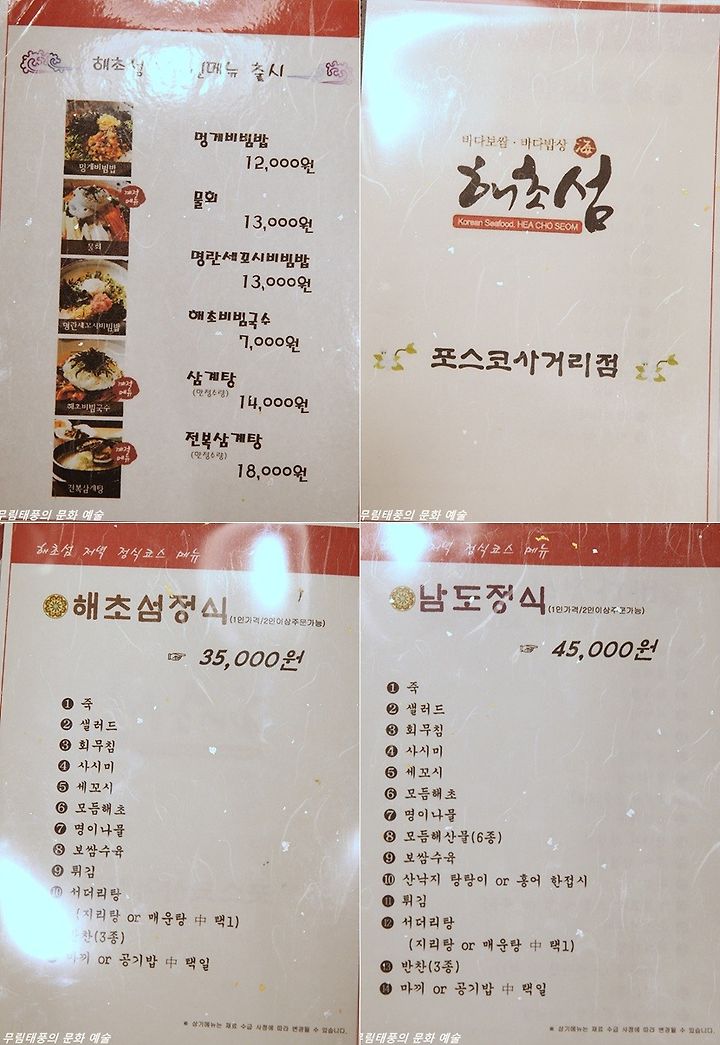 해초섬 메뉴 출시
멍게비빔밥
12,000원
물회
13,000원
명란세꼬시비빔밥
13,000원
해초비빔국수
7,000원
삼계탕
14,000원
전복삼계탕
18,000원
멍게비빔밥
계절
메뉴
물회
명란세꼬시비빔밥
계절
메뉴
해초비빔국수
계절
메뉴
전복삼계탕
무림태풍의 문화 예술
바다보쌈·바다밥상 海
해초섬
Korean Seafood, HEA CHO SEOM
포스코사거리점
무림태풍의 문화 예술
해초섬 저녁 정식코스 메뉴
해초섬정식(1인가격/2인이상주문가능)
☞ 35,000원
❶ 죽
❷ 샐러드
❸ 회무침
❹ 사시미
❺ 세꼬시
❻ 모듬해초
❼ 명이나물
❽ 보쌈수육
❾ 튀김
❿ 서더리탕
(지리탕 or 매운탕 中 택1)
반찬(3종)
마끼 or 공기밥 中 택일
※ 상기메뉴는 재료 수급 사정에 따라 변경될 수 있습니다.
무림태풍의 문화 예술
저녁 정식코스 메뉴
남도정식(1인가격/2인이상주문가능)
☞ 45,000원
❶ 죽
❷ 샐러드
❸ 회무침
❹ 사시미
❺ 세꼬시
❻ 모듬해초
❼ 명이나물
❽ 모듬해산물(6종)
❾ 보쌈수육
❿ 산낙지 탕탕이 or 홍어 한접시
⓫ 튀김
⓬ 서더리탕
(지리탕 or 매운탕 中 택1)
⓭ 반찬(3종)
⓮ 마끼 or 공기밥 中 택일
※ 상기메뉴는 재료 수급 사정에 따라 변경될 수 있습니다.
무림태풍의 문화 예술